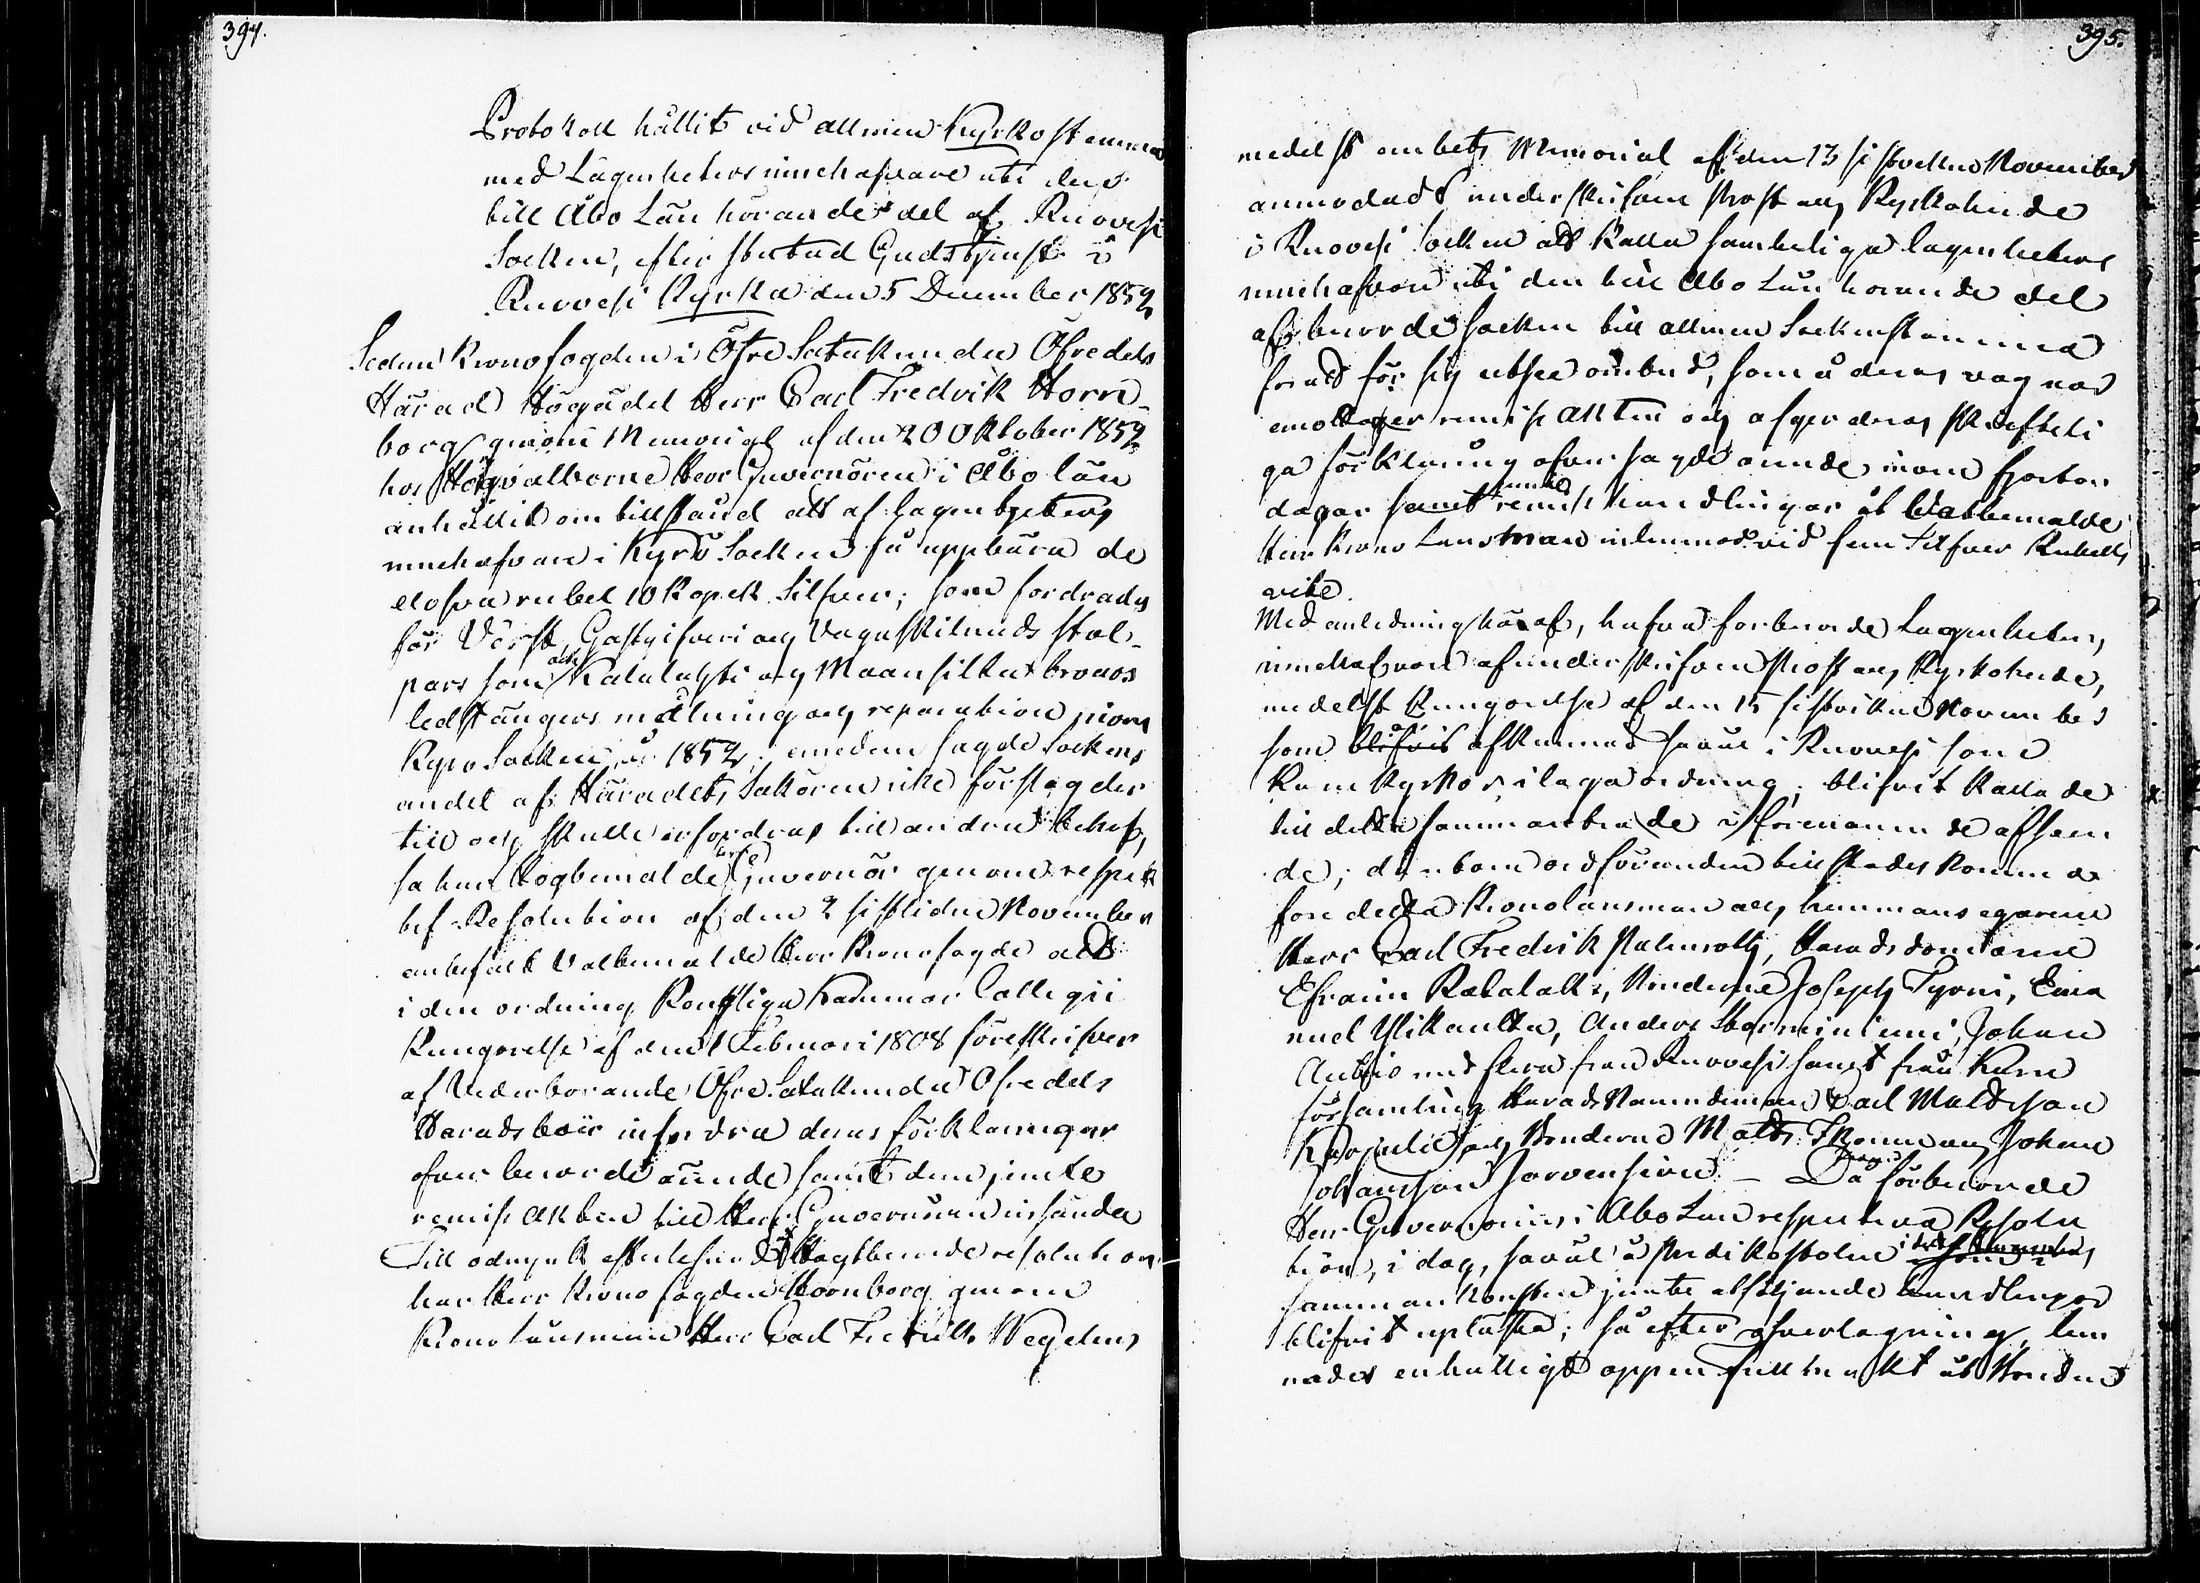 394.
Protokoll hållit vid allmen Kyrkostemma
med Lägenheters innehafvare uti den
till Åbo Län hörande del af Ruovesi
Socken, efter slutad Gudstjenst i
Ruovesi Kyrka den 5 December 1852
Sedan Kronofogden i Öfre Satakunda Öfredels
Härad Högädel Herr Carl Fredrik Horn-
borg genom Memorial af den 20 Oktober 1852
hos Högvälborne Herr Guvernören i Åbo län
anhållit om tillstånd att af Lägenheters
innehafvare i Kyrö Socken få uppbära de
elofva rubel 10 Kopek Silfver; som fordrades
för Värst, Gästgifveri och Vägaskilnads stol-
pars som äfven Kalalahti och Maansilta broars
ledstängers målning och reparation inom
Kyro Socken år 1852; emedan sagde Sockens
andel af Häradets Sakören icke förslog der
till och skulle erfordras till andra behof,
så har Högbemälde Herre Guvernör genom respek
tif Resolution af den 2 sistliden November
anbefalt Välbemälde Herr Kronofogde att
i den ordning Kongliga Kammar Collegii
Kungörelse af den 1 Februari 1808 föreskrifver
af Vederbörande Öfre Satakunda Öfredels
Häradsboer infordra deras förklaringar
öfver berörde ämnde samt dem jemte
remiss akten till Herr Guvernören insända
Till ödmjukt efterlefvande af Högtberörde resolution
har Herr Krono fogden Hornborg genom
Kronolänsman Herr Carl Fredrik Wegelius
395.
medelst embets Memorial af den 13 sistvekne November
anmodadt underskrifven Prost och Kyrkoherde
i Ruovesi Socken att kalla samteliga lägenheters
innehafvare uti den till Åbo Län hörande del
af berörde socken till allmen Sockenstemma
för att för sig utse ombud, som å deras vägnar
emottager remiss akten och afger deras skrifteli
ga förklaring öfver sagde ämnde inom fjorton
dagar samt remiss handlingar åt Välbemälde
Herr Krono Lensman inlemnad vid fem Silfver Rubels
vite.
Med anledning häraf, hafva förberörde Lägenheters
innehafvare af underskrifven Prost och Kyrkoherde,
medelst Kungörelse af den 15 sistvikne November
som blifvit afkunnad såväl i Ruovesi som
Kuru Kyrkor i laga ordning, blifvit kallade
till detta sammanträde i förenämnde afseen
de; då utom ordföranden tillstädes kommo
före detta Kronolänsman och hemmansegaren
Herr Carl Fredrik Palmroth, Häradsdomarne
Efraim Kalalahti, Bönderne Joseph Tyrni, Ema
nuel Ylikautta, Anders Storminiemi, Johan
Autio med flera från Ruovesi samt från Kuru
församling Härads Nämndeman Carl Mattsson
Karjula och Bönderne Matts Ikonen och Johan
Johansson Jarvensivu — Då förberörde
Herr Guvernörens i Åbo Län respektiva Resolu
tion, i dag, såväl å Predikostolen
sammankomsten jemte åtföljande handlingar
blifvit uplästa; så efter öfverlägning, lem
nades enhälligt öppen fullmakt åt Bonden